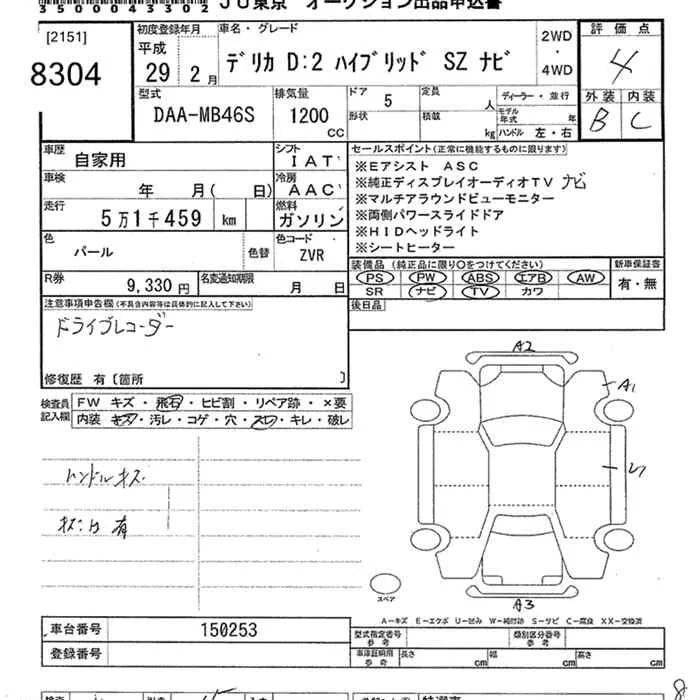 35000043302 JU東京 オークション出品申込書
[2151]
8304
初度登録年月
平成
29 2月
車名・グレード
デリカ D:2 ハイブリッド SZ ナビ
2WD
・
4WD
評価点
4
外装 内装
B C
型式
DAA-MB46S
排気量
1200
CC
ドア 5
形状
定員
人
積載
kg
ディーラー・並行
モデル年式 年
ハンドル 左・右
車歴 自家用
シフト IAT
車検 年 月( 日)
冷房 AAC
走行 5万1千459 km
燃料 ガソリン
色 パール 色替
色コード ZVR
R券 9,330円
名変通知期限 月 日
セールスポイント(正常に機能するものに限ります)
※Eアシスト ASC
※純正ディスプレイオーディオTV ナビ
※マルチアラウンドビューモニター
※両側パワースライドドア
※HIDヘッドライト
※シートヒーター
装備品(純正品に限り○をつけてください)
PS PW ABS エアB AW
SR ナビ TV カワ
新車保証書
有・無
後日品
注意事項申告欄(不具合内容等は具体的に記入して下さい)
ドライブレコーダー
修復歴 有〔箇所 〕
検査員記入欄
FW キズ・飛石・ヒビ割・リペア跡・×要
内装 キズ・汚レ・コゲ・穴・スレ・キレ・破レ
ハンドルキズ
有
A2
A1
A3
スペア
A-キズ E-エクボ U-凹み W-補修跡 S-サビ C-腐食 XX-交換済
車台番号 150253
登録番号
型式指定番号 参考
類別区分番号 参考
車庫証明用 参考
長さ cm 幅 cm 高さ cm